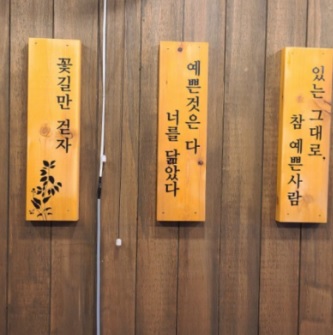 꽃길만 걷자
예쁜것은 다
너를 닮았다
있는 그대로
참 예쁜사람